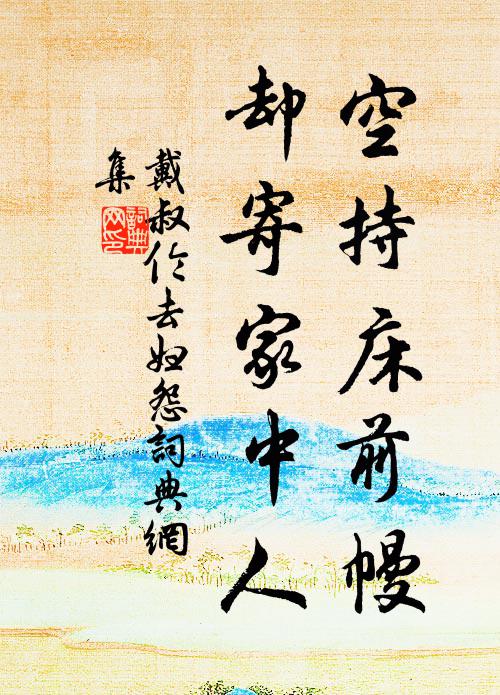 空持床前幔
却寄家中人
戴叔伦去妇怨詞典網
集
詞典网印